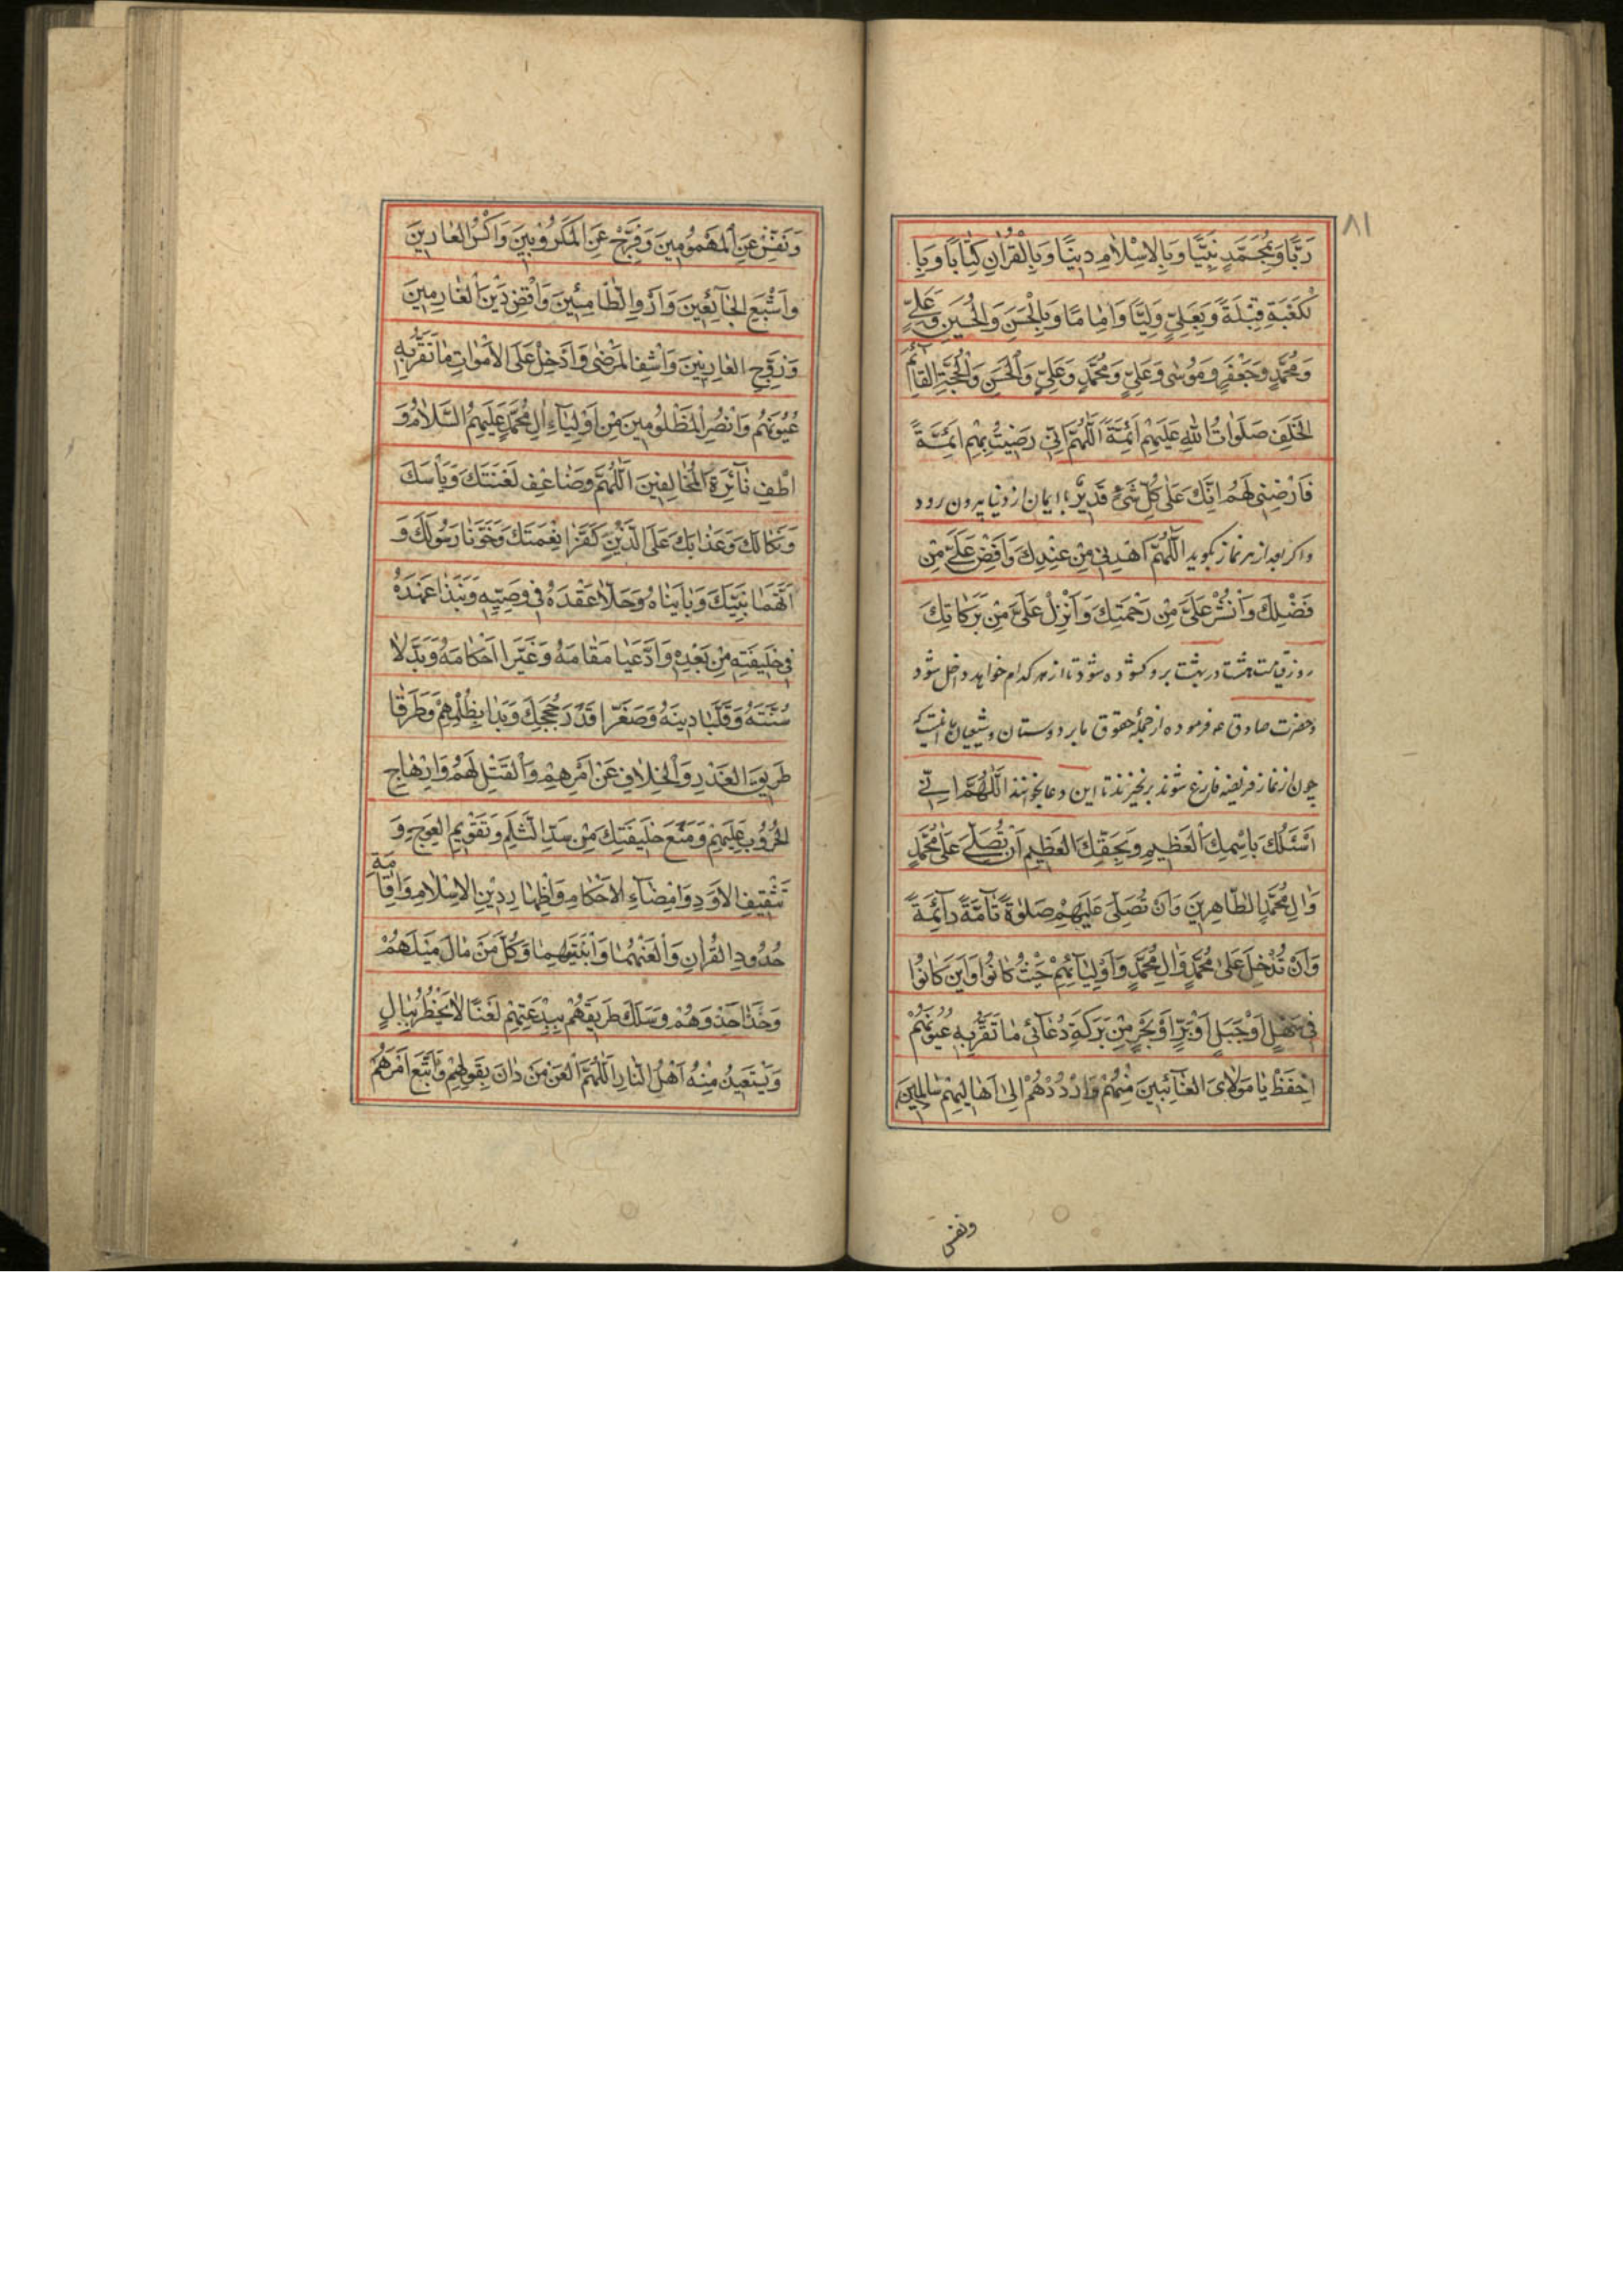 ٨١
رَبًّا وَبِمُحَمَّدٍ نَبِيًّا وَبِالْاِسْلٰامِ دِينًا وَبِالْقُرْاٰنِ كِتٰابًا وَبِا
لْكَعْبَةِ قِبْلَةً وَبِعَلِيٍّ وَلِيًّا وَاِمٰامًا وَبِالْحَسَنِ وَالْحُسَيْنِ وَعَلِيٍّ
وَمُحَمَّدٍ وَجَعْفَرٍ وَمُوسٰى وَعَلِيٍّ وَمُحَمَّدٍ وَعَلِيٍّ وَالْحَسَنِ وَالْحُجَّةِ الْقٰائِمِ
الْخَلَفِ صَلَوٰاتُ اللهِ عَلَيْهِمْ اَئِمَّةً اَللّٰهُمَّ اِنّى رَضِيتُ بِهِمْ اَئِمَّةً
فَارْضِنِى لَهُمْ اِنَّكَ عَلٰى كُلِّ شَىْءٍ قَدِيرٌ با ایمان از دنیا بیرون رود
و اکر بعد از هر نماز بکوید اَللّٰهُمَّ اهْدِنِى مِنْ عِنْدِكَ وَاَفِضْ عَلَىَّ مِنْ
فَضْلِكَ وَانْشُرْ عَلَىَّ مِنْ رَحْمَتِكَ وَاَنْزِلْ عَلَىَّ مِنْ بَرَكٰاتِكَ
روز قیامت هشت در بهشت برو کشوده شود تا از هر کدام خواهد داخل شود
و حضرت صادق عه فرموده از جمله حقوق ما بر دوستان و شیعیان ما اینست که
چون از نماز فریضه فارغ شوند برنخیزند تا این دعا بخوانند اَللّٰهُمَّ اِنّى
اَسْئَلُكَ بِاسْمِكَ الْعَظِيمِ وَبِحَقِّكَ الْعَظِيمِ اَنْ تُصَلِّىَ عَلٰى مُحَمَّدٍ
وَاٰلِ مُحَمَّدٍ الطّٰاهِرِينَ وَاَنْ تُصَلِّىَ عَلَيْهِمْ صَلٰوةً تٰامَّةً دٰائِمَةً
وَاَنْ تُدْخِلَ عَلٰى مُحَمَّدٍ وَاٰلِ مُحَمَّدٍ وَاَوْلِيٰائِهِمْ حَيْثُ كٰانُوا وَاَيْنَ كٰانُوا
فِى سَهْلٍ اَوْ جَبَلٍ اَوْ بَرٍّ اَوْ بَحْرٍ مِنْ بَرَكَةِ دُعٰائِى مٰا تَقَرُّ بِهِ عُيُونُهُمْ
اِحْفَظْ يٰا مَوْلٰاىَ الْغٰائِبِينَ مِنْهُمْ وَارْدُدْهُمْ اِلٰى اَهٰالِيهِمْ سٰالِمِينَ
ونفس
وَنَفِّسْ عَنِ الْمَهْمُومِينَ وَفَرِّجْ عَنِ الْمَكْرُوبِينَ وَاكْسُ الْعٰارِينَ
وَاَشْبِعِ الْجٰائِعِينَ وَاَرْوِ الظّٰامِئِينَ وَاقْضِ دَيْنَ الْغٰارِمِينَ
وَزَوِّجِ الْعٰازِبِينَ وَاشْفِ الْمَرْضٰى وَاَدْخِلْ عَلَى الْاَمْوٰاتِ مٰا تَقَرُّ بِهِ
عُيُونُهُمْ وَانْصُرِ الْمَظْلُومِينَ مِنْ اَوْلِيٰاءِ اٰلِ مُحَمَّدٍ عَلَيْهِمُ السَّلٰامُ وَ
اَطْفِ نٰائِرَةَ الْمُخٰالِفِينَ اَللّٰهُمَّ وَضٰاعِفْ لَعْنَتَكَ وَبَاْسَكَ
وَنَكٰالَكَ وَعَذٰابَكَ عَلَى الَّذَيْنِ كَفَرٰا نِعْمَتَكَ وَخَوَّنٰا رَسُولَكَ وَ
اتَّهَمٰا نَبِيَّكَ وَبٰايَنٰاهُ وَحَلّٰا عَقْدَهُ فِى وَصِيِّهِ وَنَبَذٰا عَهْدَهُ
فِى خَلِيفَتِهِ مِنْ بَعْدِهِ وَادَّعَيٰا مَقٰامَهُ وَغَيَّرٰا اَحْكٰامَهُ وَبَدَّلٰا
سُنَّتَهُ وَقَلَّبٰا دِينَهُ وَصَغَّرٰا قَدْرَ حُجَجِكَ وَبَدَاٰ بِظُلْمِهِمْ وَطَرَّقٰا
طَرِيقَ الْغَدْرِ وَالْخِلٰافِ عَنْ اَمْرِهِمْ وَالْقَتْلِ لَهُمْ وَاِرْهٰاجِ
الْحُرُوبِ عَلَيْهِمْ وَمَنْعَ خَلِيفَتِكَ مِنْ سَدِّ الثَّلْمِ وَتَقْوِيمِ الْعِوَجِ وَ
تَثْقِيفِ الْاَوَدِ وَاِمْضٰاءِ الْاَحْكٰامِ وَاِظْهٰارِ دِيْنِ الْاِسْلٰامِ وَاِقٰامَةِ
حُدُودِ الْقُرْاٰنِ وَالْعَنْهُمٰا وَابْنَتَيْهِمٰا وَكُلَّ مَنْ مٰالَ مَيْلَهُمْ
وَحَذٰا حَذْوَهُمْ وَسَلَكَ طَرِيقَهُمْ بِبِدْعَتِهِمْ لَعْنًا لٰا يَخْطُرُ بِبٰالٍ
وَيَسْتَعِيذُ مِنْهُ اَهْلُ النّٰارِ اَللّٰهُمَّ الْعَنْ مَنْ دٰانَ بِقَوْلِهِمْ وَاتَّبَعَ اَمْرَهُمْ